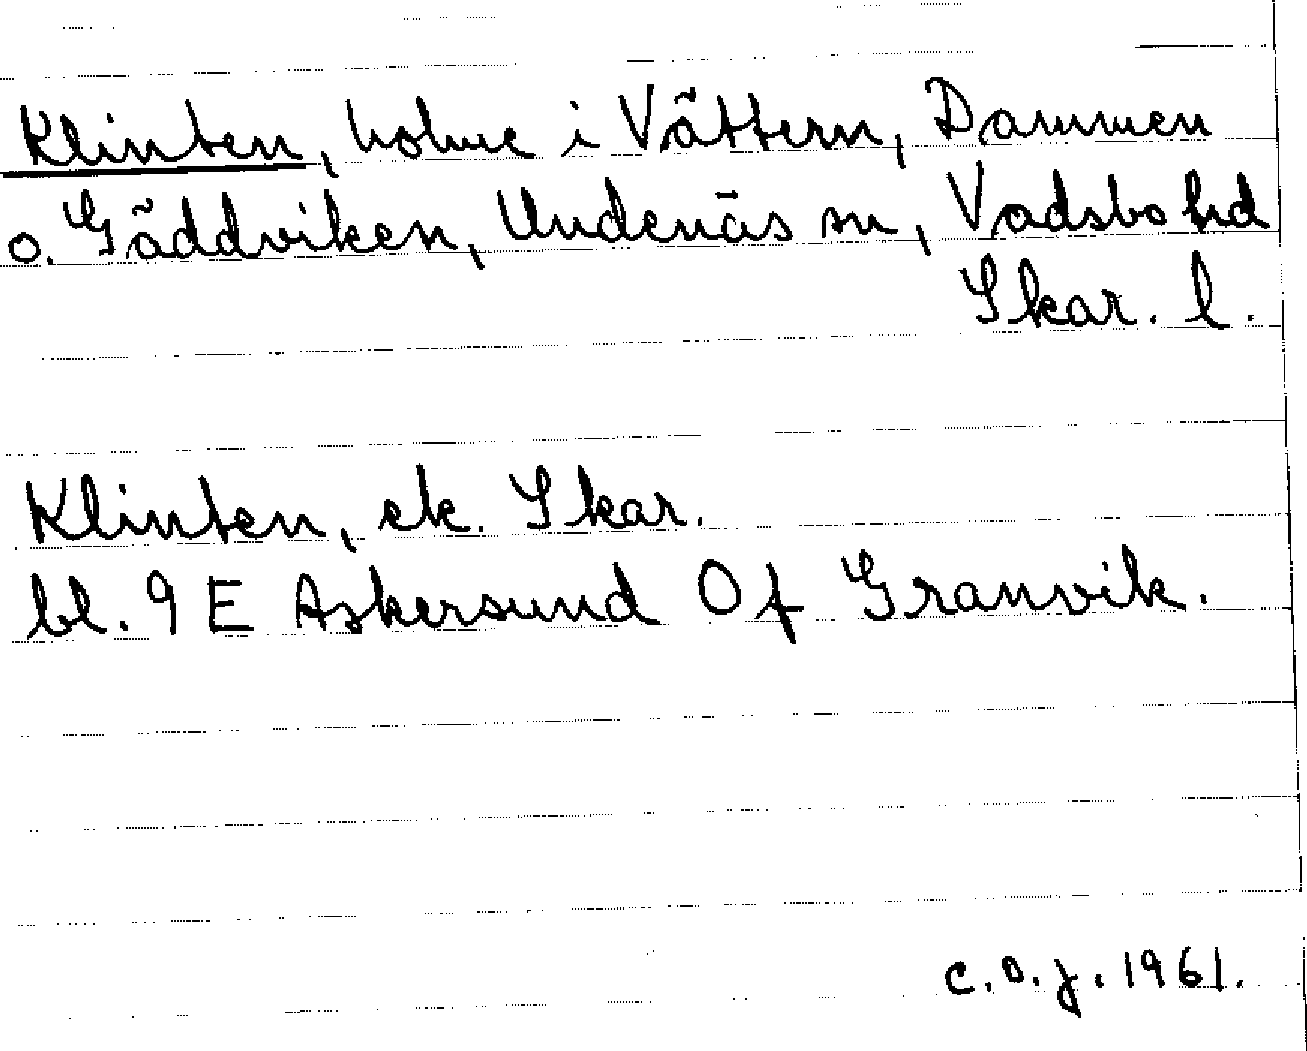 Klinten, holme i Vättern, Dammen
o. Gäddviken, Undenäs sn, Vadsbo hd
Skar. l.
Klinten, ek. Skar.
bl. 9 E Askersund Of Granvik.
c.o.j. 1961.